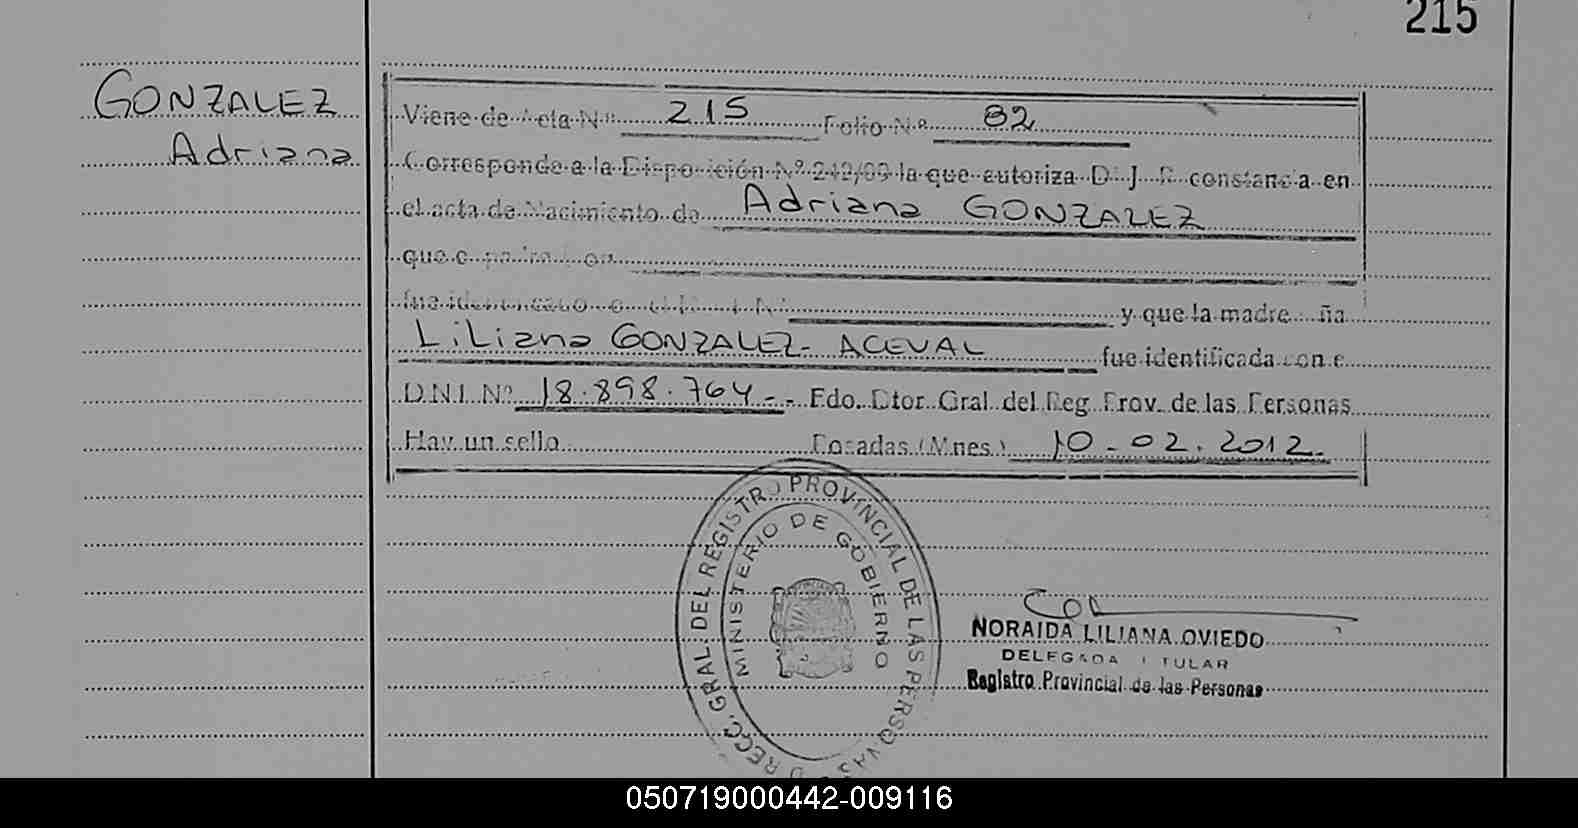 215
GONZALEZ
Adriana
Viene de Acta Nº 215 Folio Nº 82
Corresponde a la Disposición Nº 242/09 la que autoriza D. J. R. constancia en
el acta de Nacimiento de Adriana GONZALEZ
que el padre don
fue identificado y que la madre ña
LiLiana GONZALEZ - ACEVAL fue identificada con e
D.N.I. Nº 18.898.764 - - Fdo. Dtor. Gral. del Reg. Prov. de las Personas
Hay un sello Posadas (Mnes) 10 - 02. 2012.
DIRECC. GRAL. DEL REGISTRO PROVINCIAL DE LAS PERSONAS
MINISTERIO DE GOBIERNO
NORAIDA LILIANA OVIEDO
DELEGADA TITULAR
Registro Provincial de las Personas
050719000442-009116